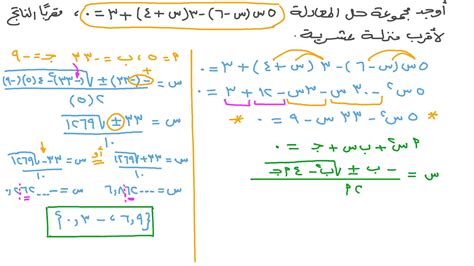 أوجد مجموعة حل المعادلة ٥س(س-٦)-٣(س+٤)+٣=٠ ، مقربًا الناتج
لأقرب منزلة عشرية.
٥س(س-٦)-٣(س+٤)+٣=٠
٥س٢-٣٠س-٣س-١٢+٣=٠
* ٥س٢-٣٣س-٩=٠ *
٢س٢+ب س+جـ=٠
س = -ب±√ب٢-٤٢جـ / ٢٢
٢=٥ ، ب=-٣٣ ، جـ=-٩
س = -(-٣٣)±√(-٣٣)٢-٤(٥)(-٩) / ٢(٥)
س = ٣٣±√١٢٦٩ / ١٠
س = ٣٣+√١٢٦٩ / ١٠ أو س = ٣٣-√١٢٦٩ / ١٠
{٦,٩ ، -٠,٣}